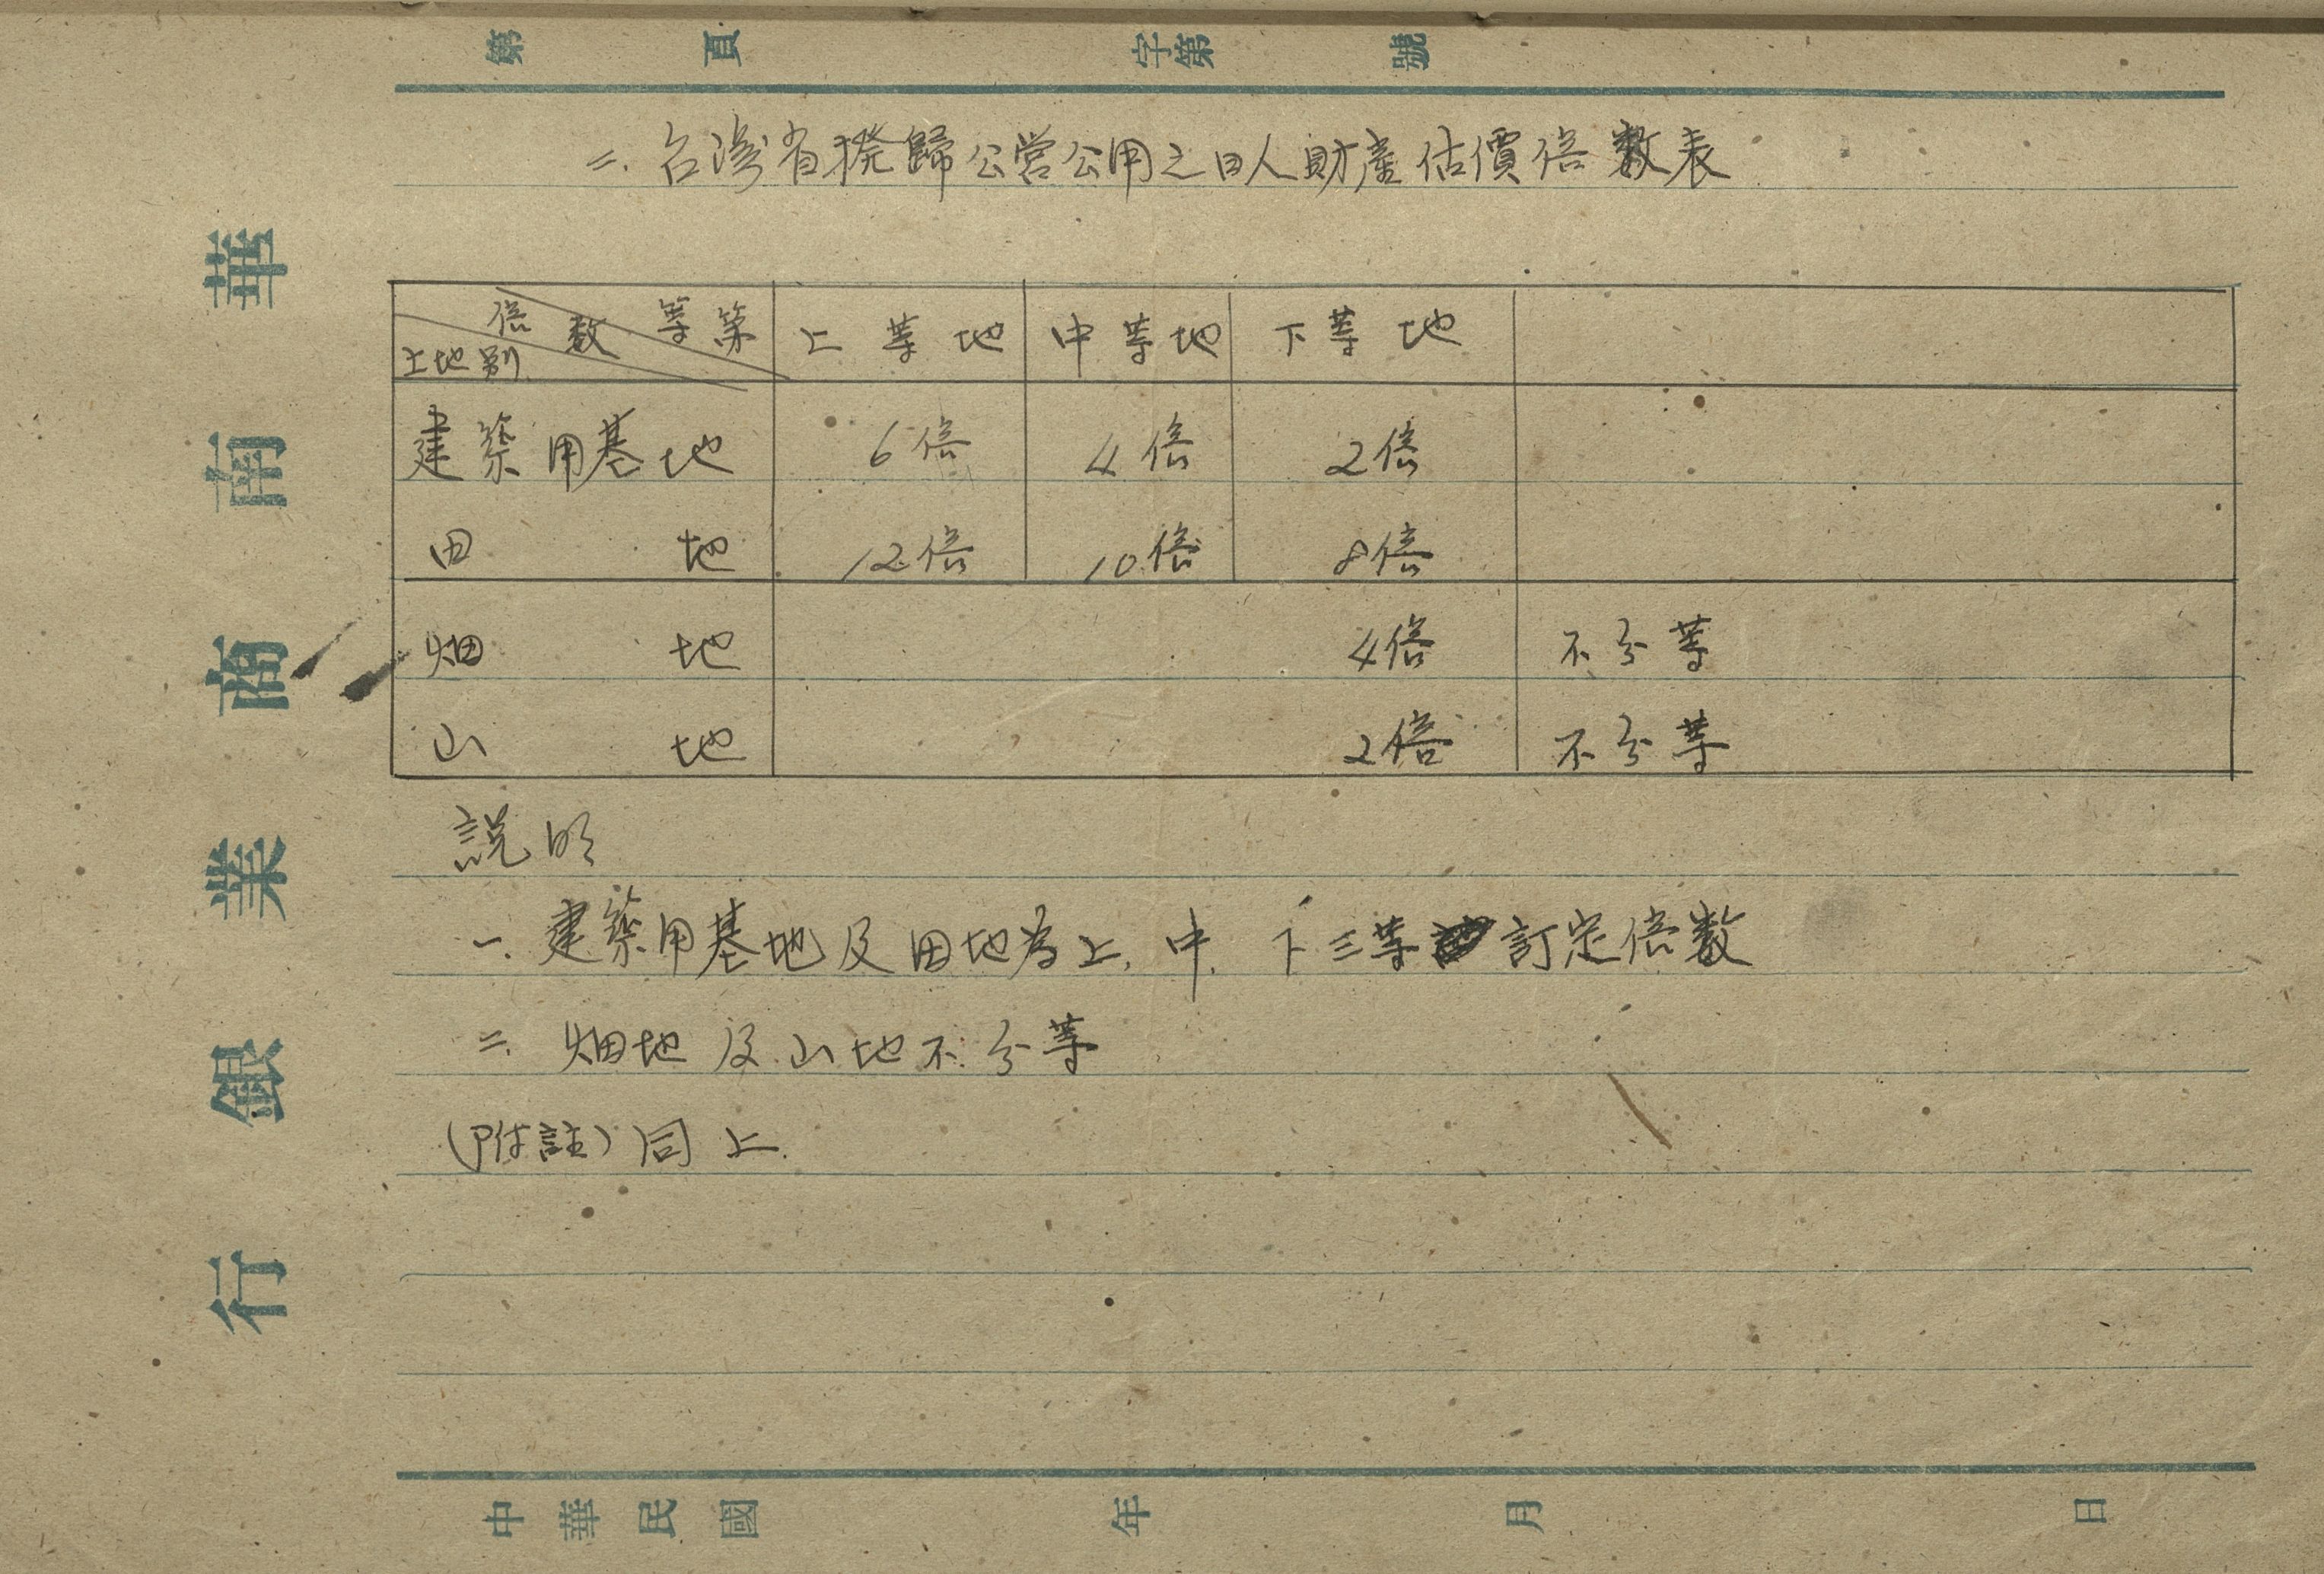 第 頁 字第 號
二. 台湾省撥歸公営公用之日人財產估價倍数表
倍数 等第 土地別 上等地 中等地 下等地
建築用基地 6倍 4倍 2倍
田地 12倍 10倍 8倍
畑地 4倍 不分等
山地 2倍 不分等
説明
一. 建築用基地及田地為上. 中. 下三等訂定倍数
二. 畑地及山地不分等
(附註) 同上.
中華民國 年 月 日
華南商業銀行